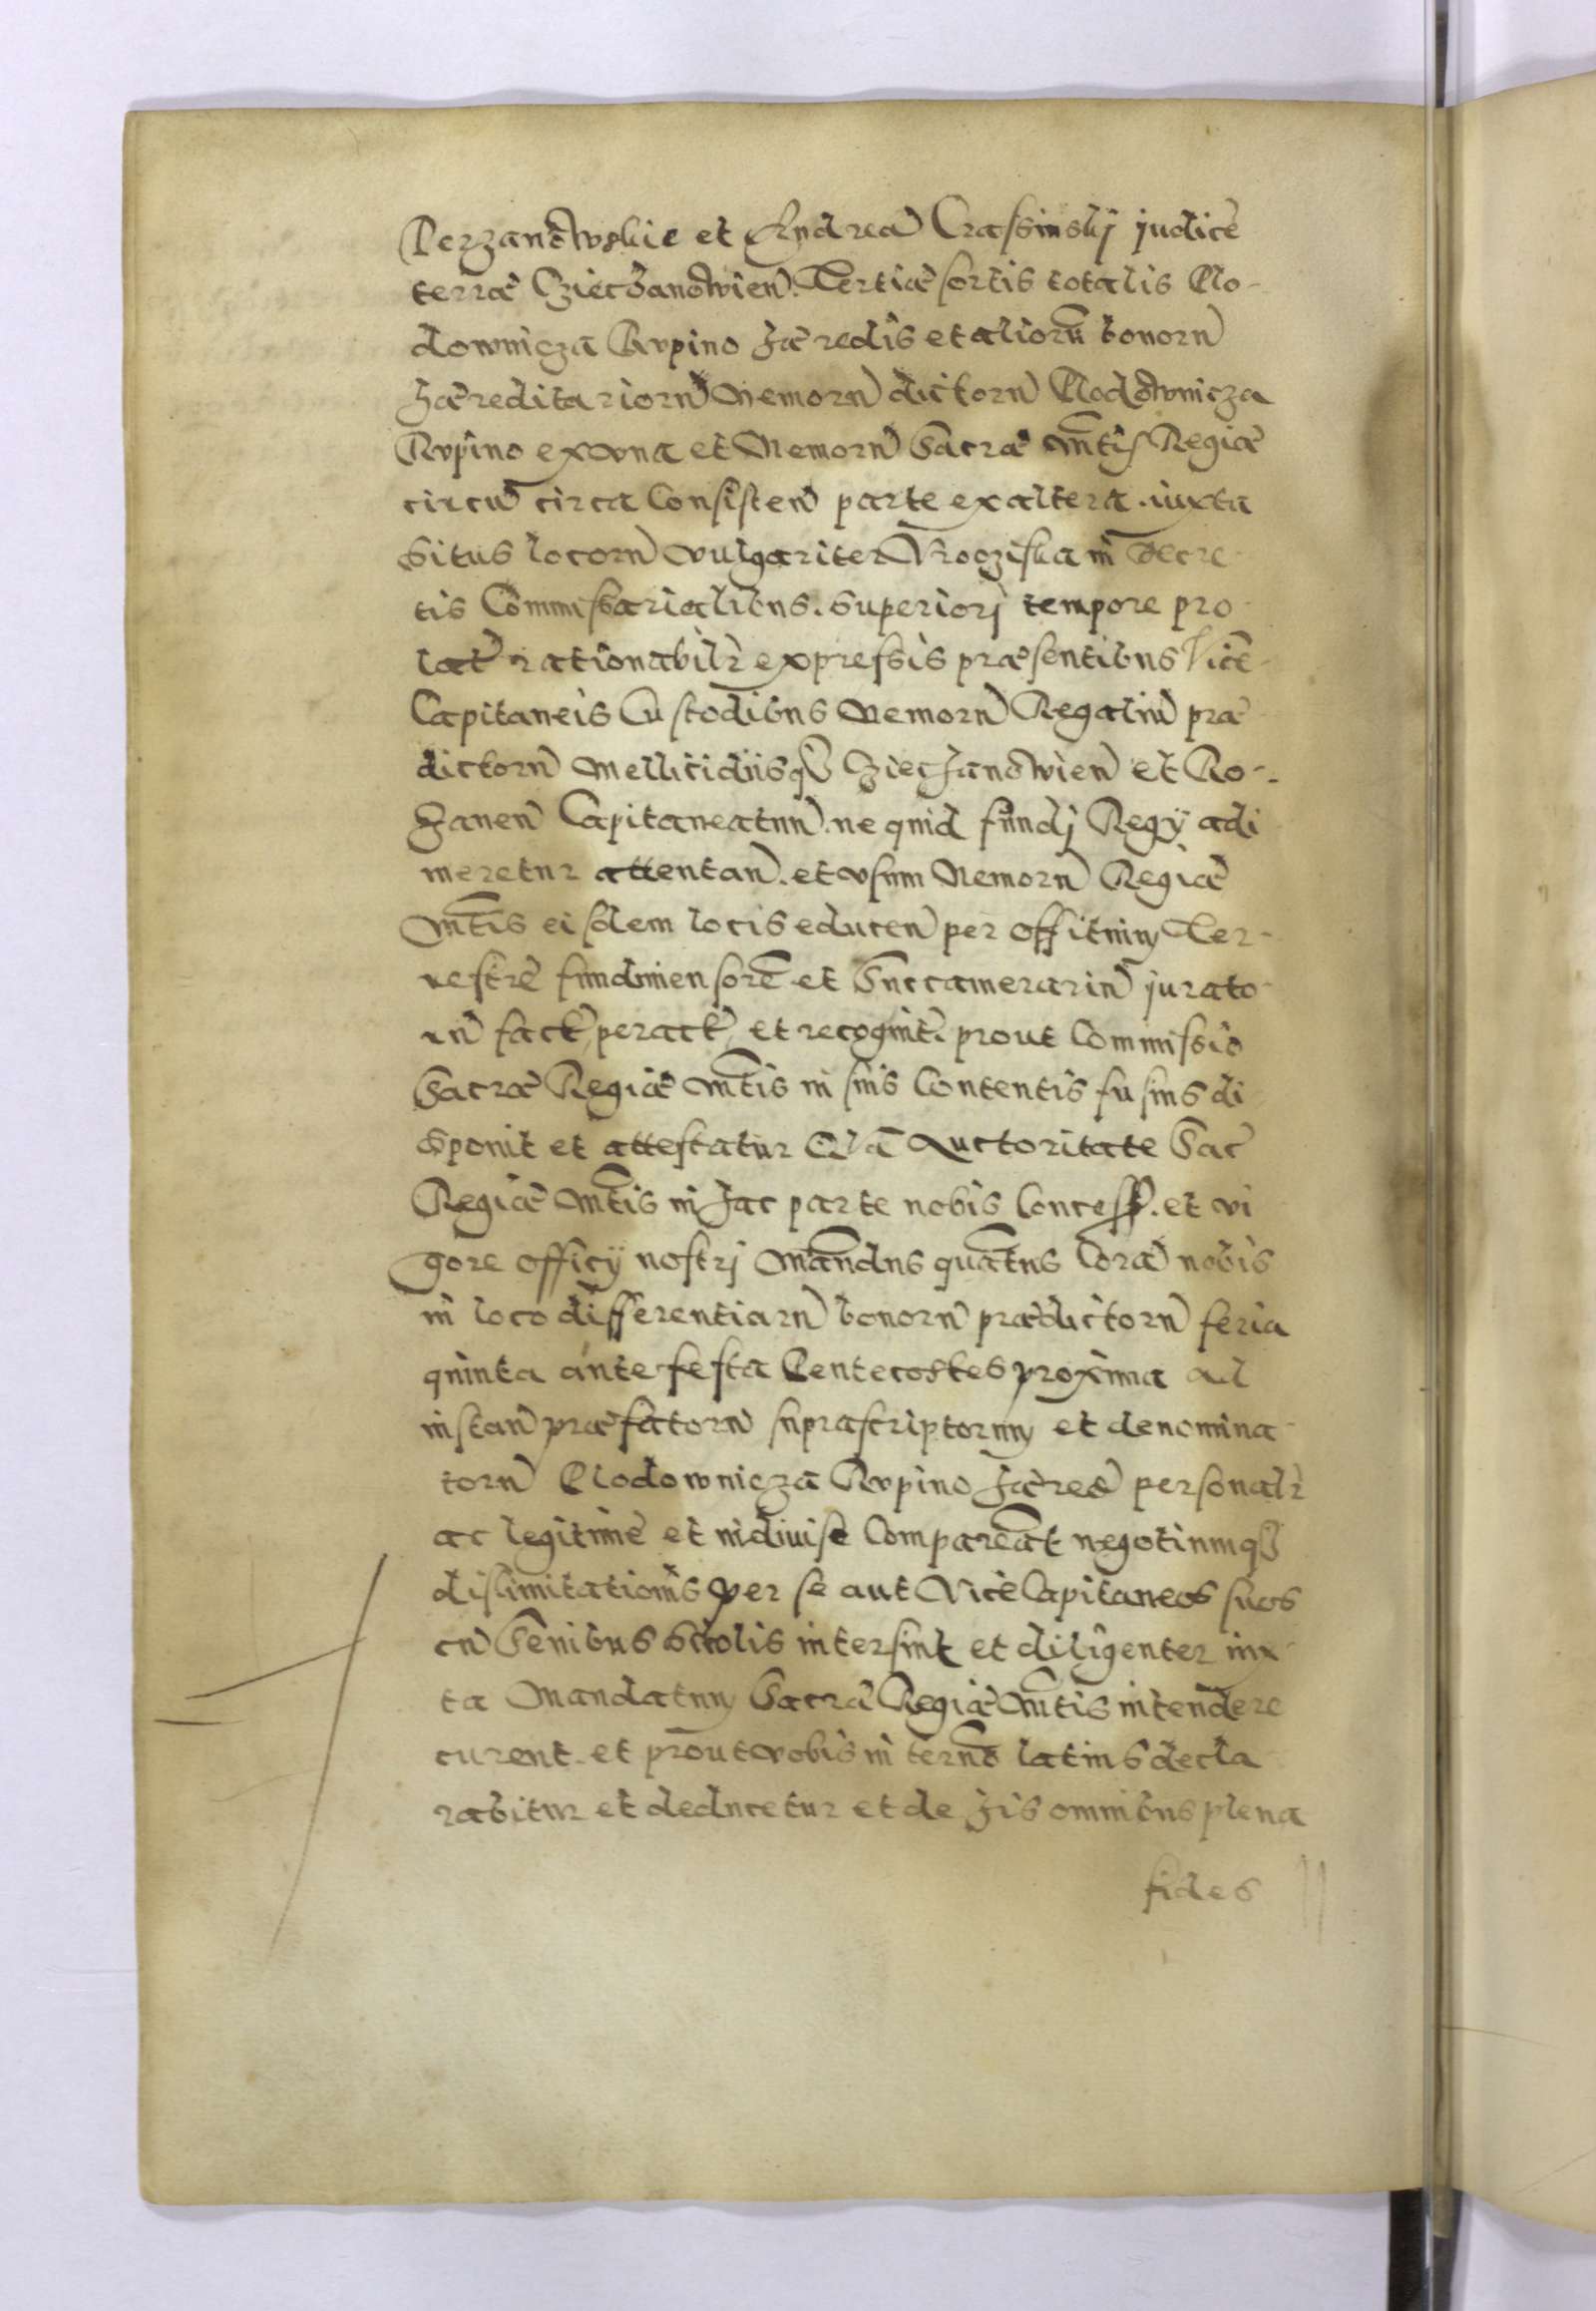 Perzanowskie et Andrea Crassinskj judice
terræ Cziechanowien. Tertiæ sortis totalis Plo-
downicza Rupino hæredis et aliorũ bonorũ
hæreditariorũ Nemorũ dictorũ Plodownicza
Rvpino ex vna et Nemorũ Sacræ Mtis Regiæ
circũ circa Consisten parte ex altera. iuxta
situs locorũ vulgariter Vroczyska in Decre-
tis Commissarialibus. superiorj tempore pro-
lat rationabilr expressis præsentibus Vice-
Capitaneis Custodibus Nemorũ Regaliũ præ-
dictorũ Mellicidiisqz Cziechanowien et Ro-
zanen Capitaneatuũ. ne quid fundj Regÿ adi
meretur attentan. et vsum Nemorũ Regiæ
Mtis eisdem locis educen per offitium Ter-
restre fundimensorẽ et Succamerariũ jurato-
rũ fact, peract, et recognit. prout Commissio
Sacræ Regiæ Mtis in suis Contentis fusius di
sponit et attestatur Qua Auctoritate Sac
Regiæ Mtis in hac parte nobis Concess. et vi
gore officÿ nostrj Mandus quatns Corã nobis
in loco differentiarũ bonorũ prædictorũ feria
quinta ante festa Pentecostes proxima ad
instan præfatorũ suprascriptorum et denomina-
torũ Plodownicza Rvpino hæred personalr
ac legitime et indiuise Compareãt negotiumqz
dislimitationis per se aut Vice Capitaneos suos
cũ Senibus Scolis intersint et diligenter iux-
ta Mandatum Sacræ Regiæ Mtis intendere
curent. et prout vobis in termo latius decla
rabitur et deducetur et de his omnibus plena
fides